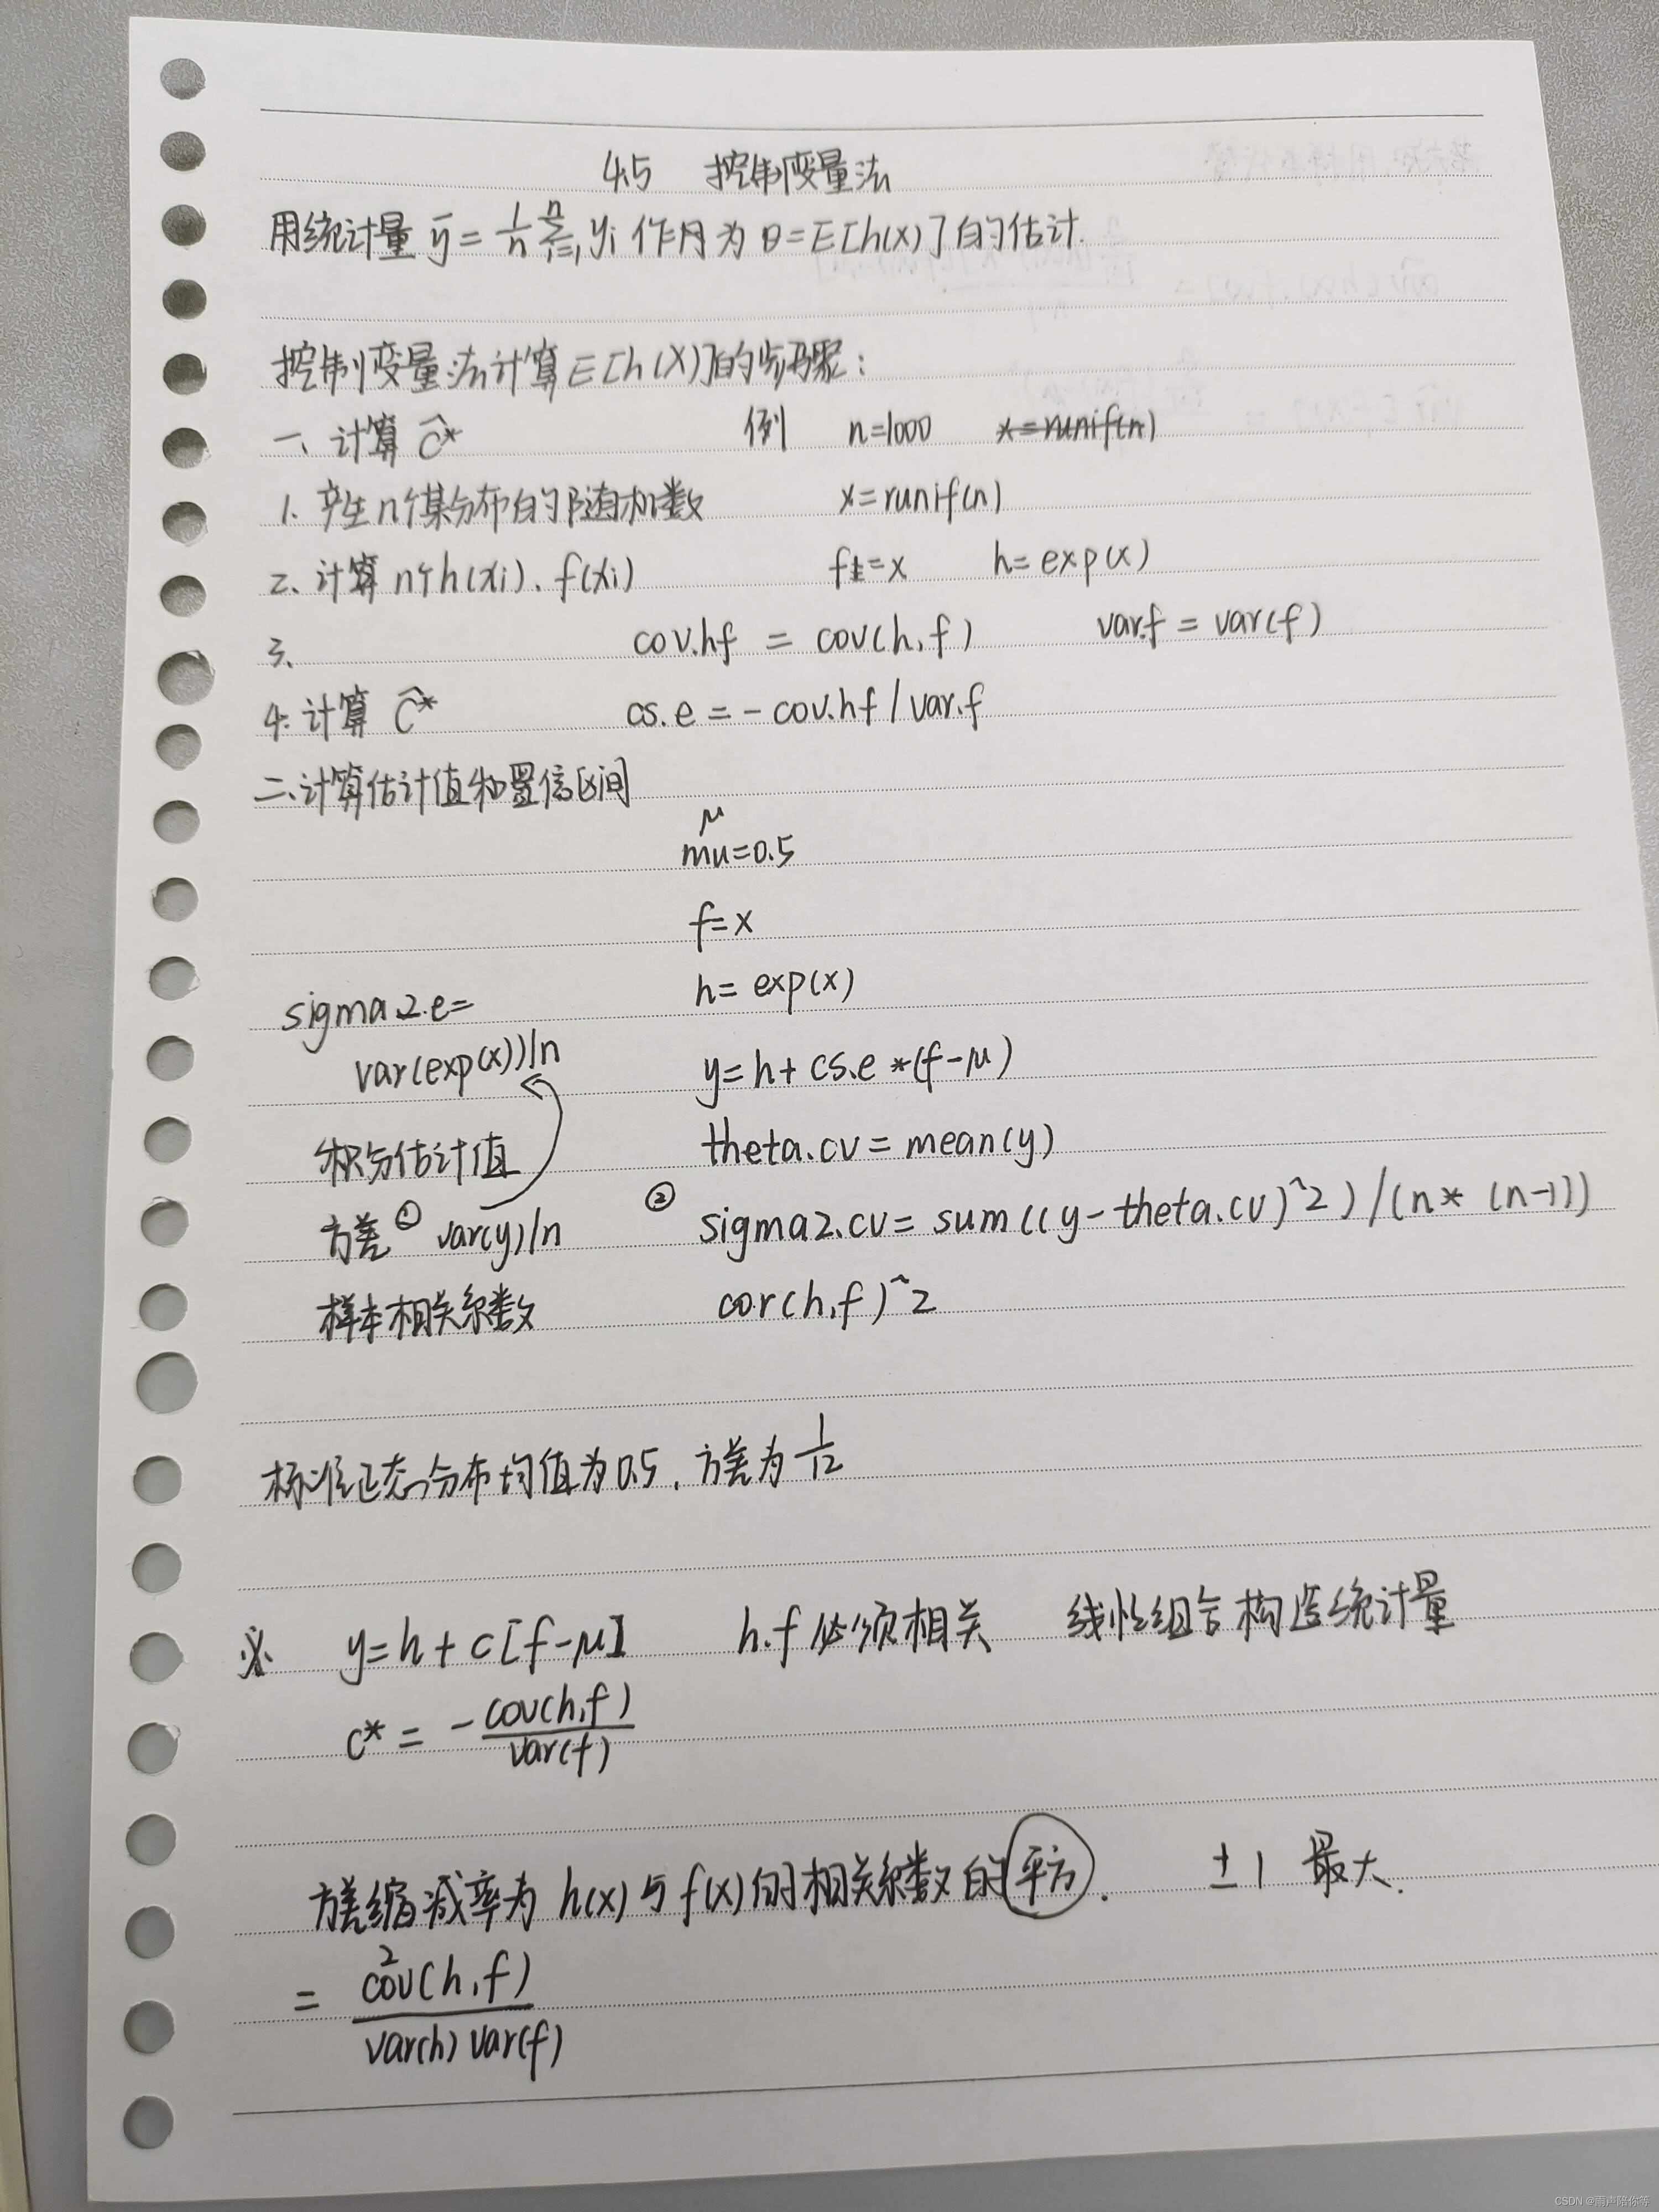 4.5 控制变量法
用统计量 ȳ = 1/n Σ_{i=1}^{n} yi 作为 θ = E[h(X)] 的估计.
控制变量法计算E[h(X)]的步骤:
一、计算 ĉ* 例 n=1000 x=runif(n)
1. 产生n个某分布的随机数 x=runif(n)
2. 计算 n个h(xi). f(xi) f=x h=exp(x)
3. cov.hf = cov(h,f) var.f = var(f)
4. 计算 ĉ* cs.e = - cov.hf / var.f
二、计算估计值和置信区间
μ
mu=0.5
f=x
h= exp(x)
sigma2.e=
var(exp(x))/n y=h+ cs.e *(f-μ)
积分估计值 theta.cv = mean(y)
方差 ① var(y)/n ② sigma2.cv= sum((y-theta.cv)^2)/(n*(n-1))
样本相关系数 cor(h,f)^2
标准正态分布均值为0.5. 方差为 1/12
※ y=h+c[f-μ] h.f必须相关 线性组合构造统计量
c* = - cov(h,f) / var(f)
方差缩减率为 h(x)与f(x)的相关系数的平方. ±1 最大.
= cov²(h,f) / var(h) var(f)
CSDN @雨声陪你等